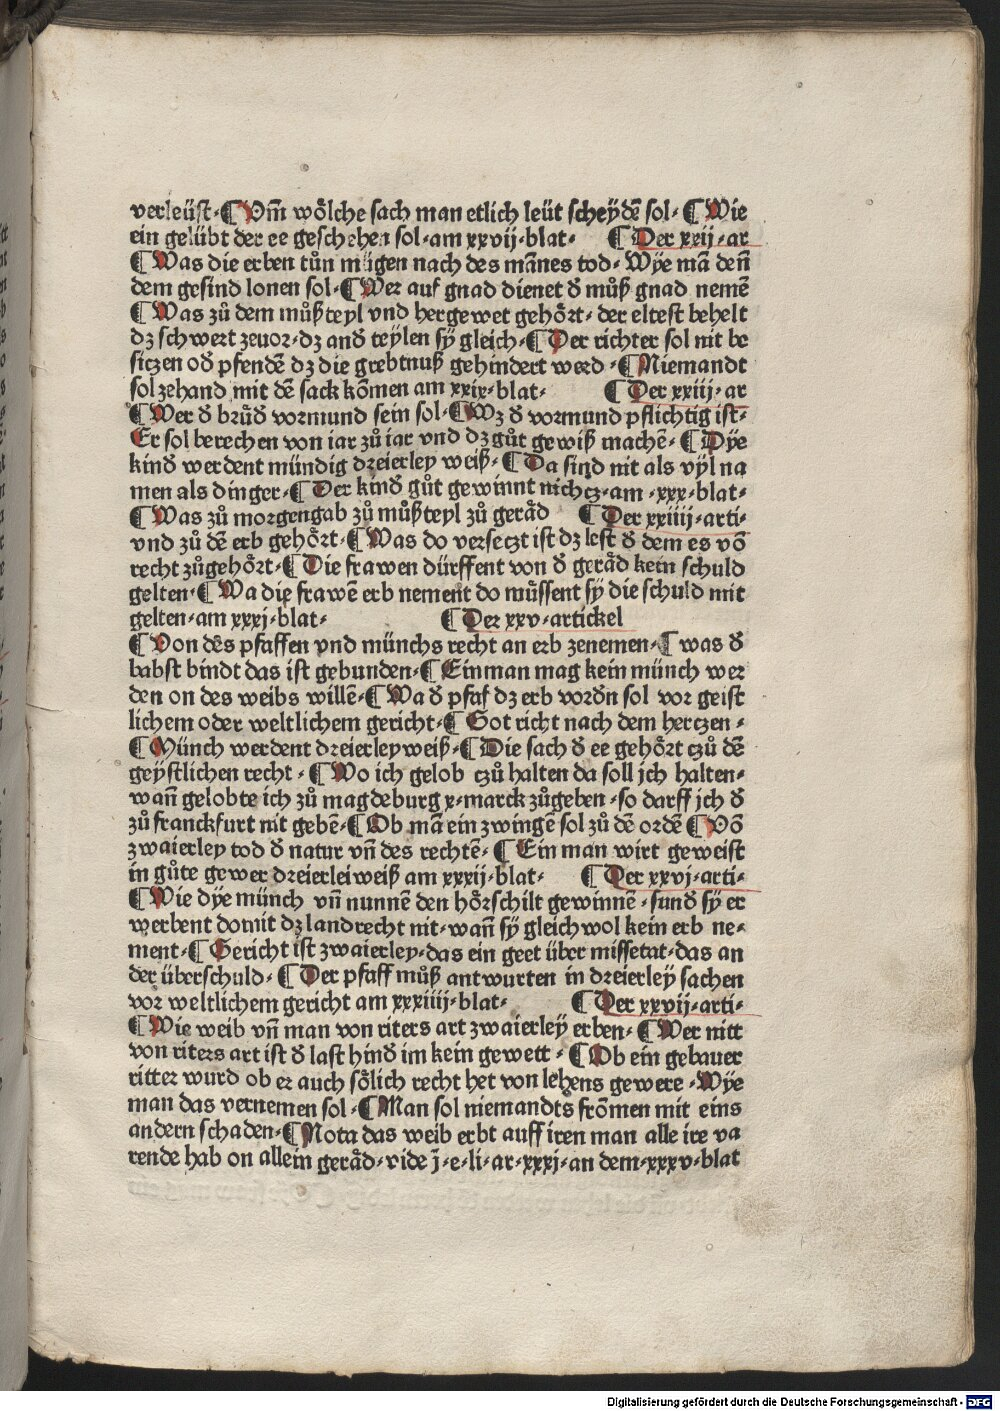 verleüst·¶Vm̄ wȯlche sach man etlich leüt scheydē sol·¶Wie
ein gelübt der ee geschehen sol·am xxvij·blat· ¶Der xxij·ar
¶Was die erben tůn mügen nach des mānes tod·Wye mā den̄
dem gesind lonen sol·¶Wer auf gnad dienet đ můß gnad nemē
¶Was zů dem můßteyl vnd hergewet gehȯrt·der eltest behelt
dz schwert zeuor·dz and teylen sy gleich·¶Der richter sol nit be
sitzen ođ pfendē dz die grebtnuß gehindert werd·¶Niemandt
sol zehand mit dē sack kōmen am xxix·blat· ¶Der xxiij·ar
¶Wer đ brüđ vormund sein sol·¶Wz đ vormund pflichtig ist·
Er sol berechen von iar zů iar vnd dz gůt gewiß machē·¶Dye
kinđ werdent mündig dreierley weiß·¶Da sind nit als vyl na
men als dinger·¶Der kinđ gůt gewinnt nichcz·am·xxx·blat·
¶Was zů morgengab zů můßteyl zů gerȧd ¶Der xxiiij·arti·
vnd zů dē erb gehȯrt·¶Was do versetzt ist dz lest đ dem es vō
recht zůgehȯrt·¶Die frawen dürffent von đ gerȧd kein schuld
gelten·¶Wa die frawē erb nement do müssent sy die schuld mit
gelten·am xxxj·blat· ¶Der xxv·artickel
¶Von des pfaffen vnd münchs recht an erb zenemen·¶was đ
babst bindt das ist gebunden·¶Ein man mag kein münch wer
den on des weibs willē·¶Wa đ pfaf dz erb vorđn sol vor geist
lichem oder weltlichem gericht·¶Got richt nach dem hertzen·
¶Münch werdent dreierley weiß·¶Die sach đ ee gehȯrt czů dē
geystlichen recht·¶Wo ich gelob czů halten da soll jch halten·
wan̄ gelobte ich zů magdeburg x·marck zůgeben·so darff jch đ
zů franckfurt nit gebē·¶Ob mā ein zwingē sol zů dē ordē ¶Vō
zwaierley tod đ natur vn̄ des rechtē·¶Ein man wirt geweist
in gůte gewer dreierlei weiß am xxxij·blat· ¶Der xxvj·arti·
¶Wie dye münch vn̄ nunnē den hȯrschilt gewinnē·sunđ sy er
werbent domit dz landrecht nit·wan̄ sy gleich wol kein erb ne·
ment·¶Gericht ist zwaierley·das ein geet über missetat·das an
der überschuld·¶Der pfaff můß antwurten in dreierley sachen
vor weltlichem gericht am xxxiiij·blat· ¶Der xxvij·arti·
¶Wie weib vn̄ man von riters art zwaierley erben·¶Wer nitt
von riters art ist đ last hinđ im kein gewett·¶Ob ein gebauer
ritter wurd ob er auch sȯlich recht het von lehens gewere·Wye
man das vernemen sol·¶Man sol niemandts frōmen mit eins
andern schaden·¶Nota das weib erbt auff iren man alle ire va
rende hab on allein gerȧd·vide j̄·e·li·ar·xxxj·an dem·xxxv·blat
Digitalisierung gefördert durch die Deutsche Forschungsgemeinschaft - DFG